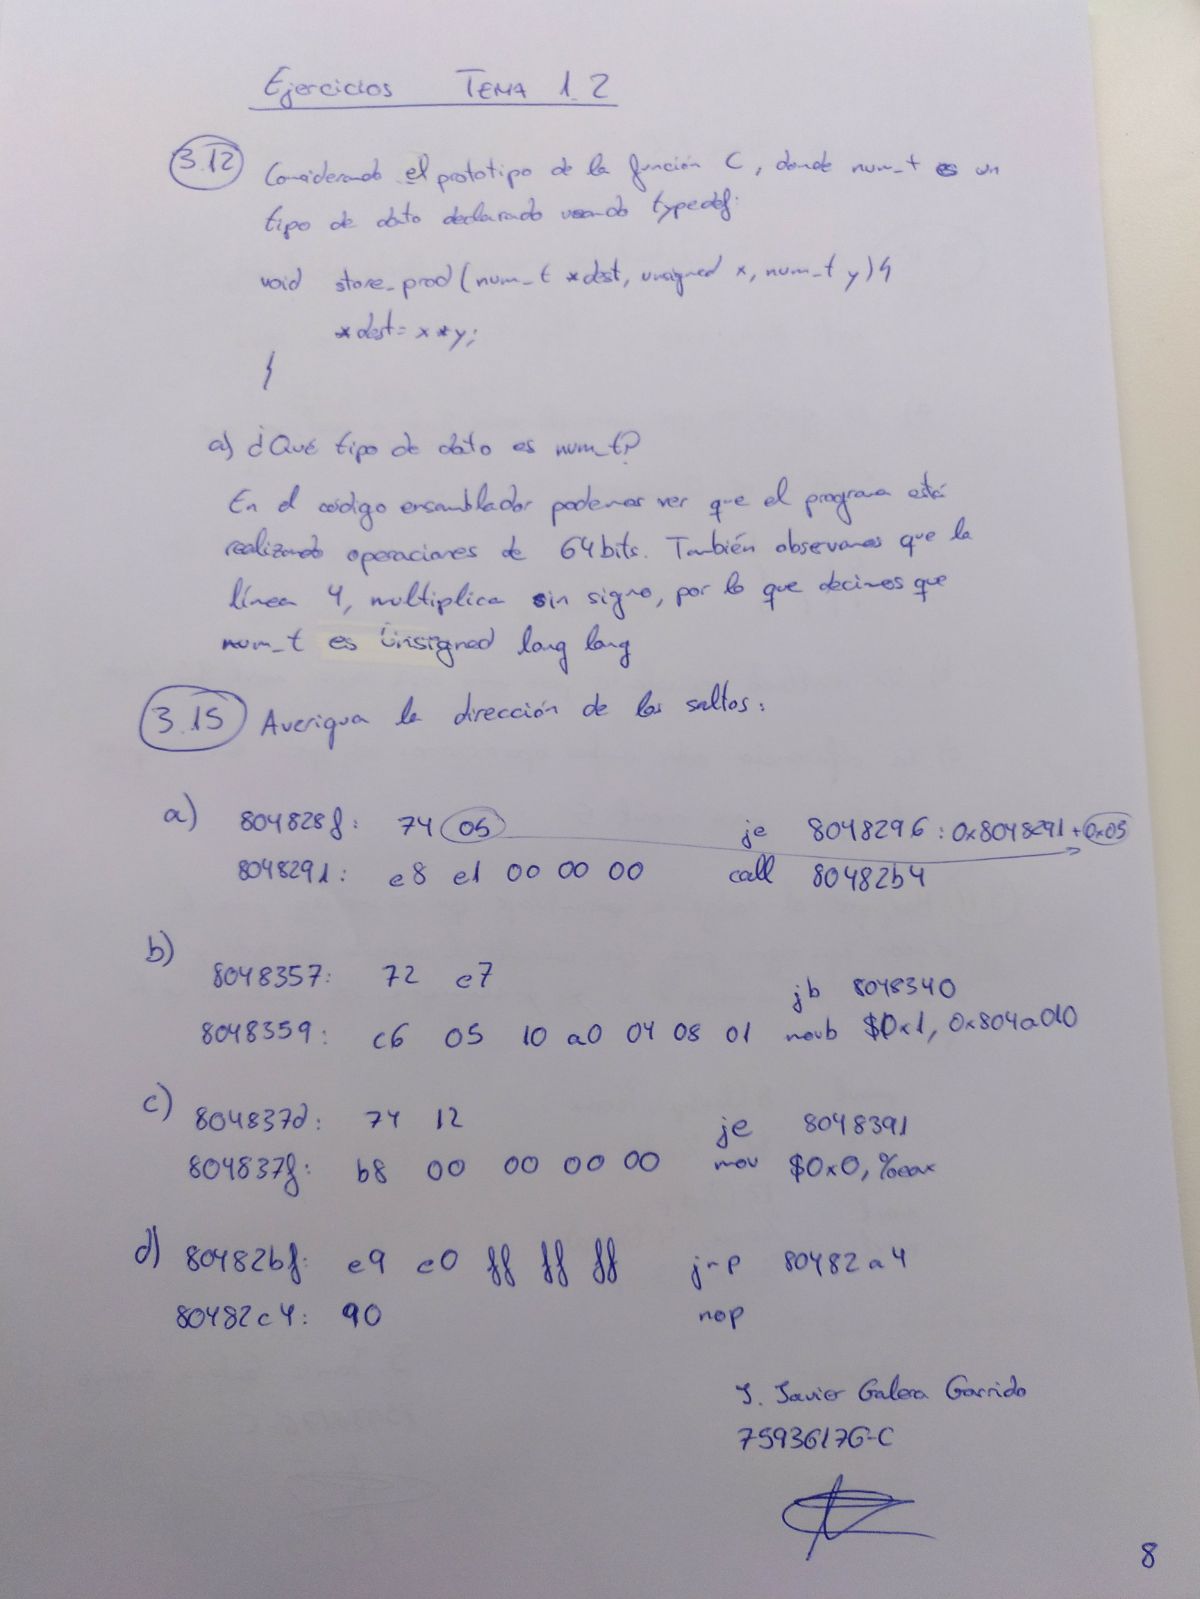 Ejercicios TEMA 1_2
3.12 Considerando el prototipo de la función C, donde num_t es un
tipo de dato declarado usando typedef:
void store_prod (num_t *dest, unsigned x, num_t y) {
*dest = x*y;
}
a) ¿Qué tipo de dato es num_t?
En el código ensamblador podemos ver que el programa está
realizando operaciones de 64 bits. También observamos que la
línea 4, multiplica sin signo, por lo que decimos que
num_t es unsigned long long
3.15 Averigua la dirección de los saltos:
a) 804828f: 74 05 je 8048296 : 0x8048291 + 0x05
8048291: e8 e1 00 00 00 call 80482b4
b) 8048357: 72 e7 jb 8048340
8048359: c6 05 10 a0 04 08 01 movb $0x1, 0x804a010
c) 804837d: 74 12 je 8048391
804837f: b8 00 00 00 00 mov $0x0, %eax
d) 80482bf: e9 e0 ff ff ff jmp 80482a4
80482c4: 90 nop
J. Javier Galera Garrido
75936176-C
8